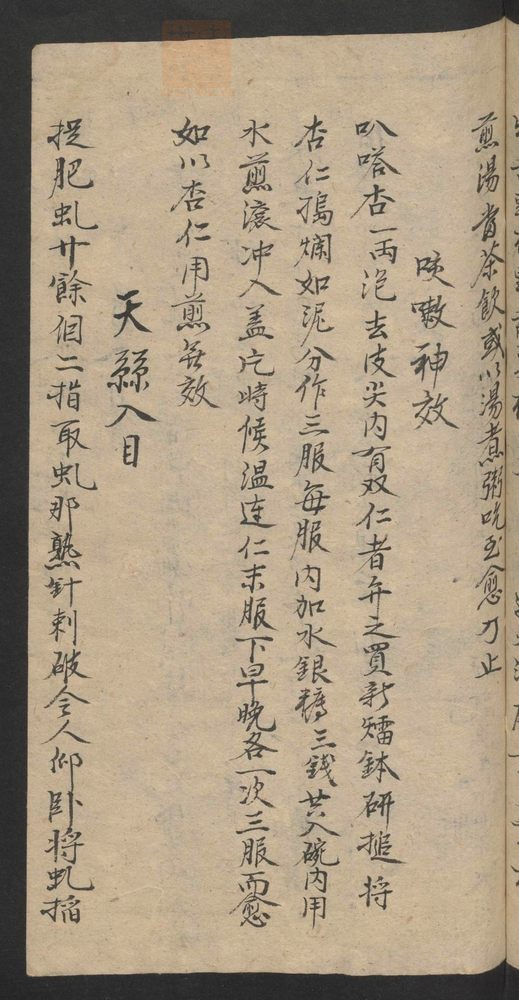 煎湯當茶飲或以湯煮粥吃至愈乃止
咳嗽神效
叭嗒杏一両泡去皮尖内有双仁者弃之買新擂鉢研搥将
杏仁搗爛如泥分作三服每服内加水銀糖三錢共入碗内用
水煎滚冲入盖片時候温连仁末服下早晚各一次三服而愈
如以杏仁用煎無效
天絲入目
捉肥虱廿餘個二指取虱那熟針刺破令人仰卧将虱掐